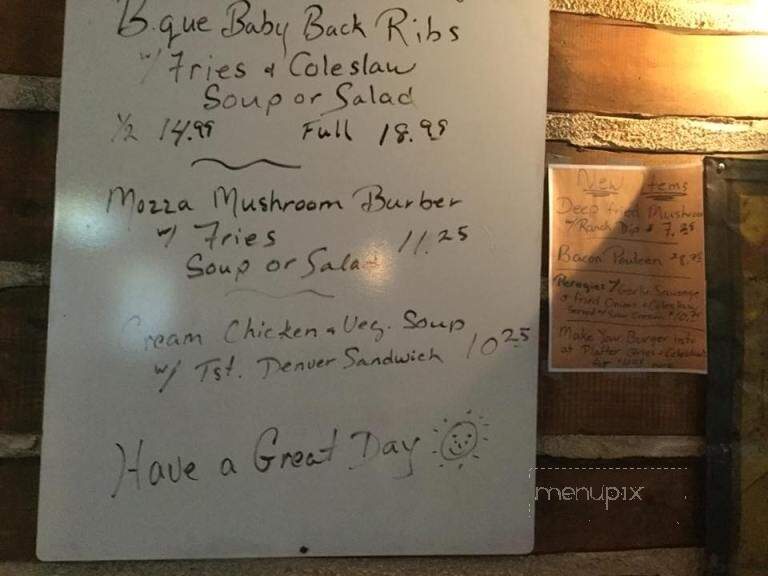 B.que Baby Back Ribs
w/ Fries & Coleslaw
Soup or Salad
1/2 14.99 Full 18.99
Mozza Mushroom Burber
w/ Fries 11.25
Soup or Salad
Cream Chicken & Veg. Soup
w/ Tst. Denver Sandwich 10.25
Have a Great Day
New Items
Deep fried Mushroom
w/ Ranch Dip
Bacon Pouteen
Perogies w/ Garlic Sausage
& fried Onions & Coleslaw
Served w/ Sour Cream
Make Your Burger into
a Platter
menupix